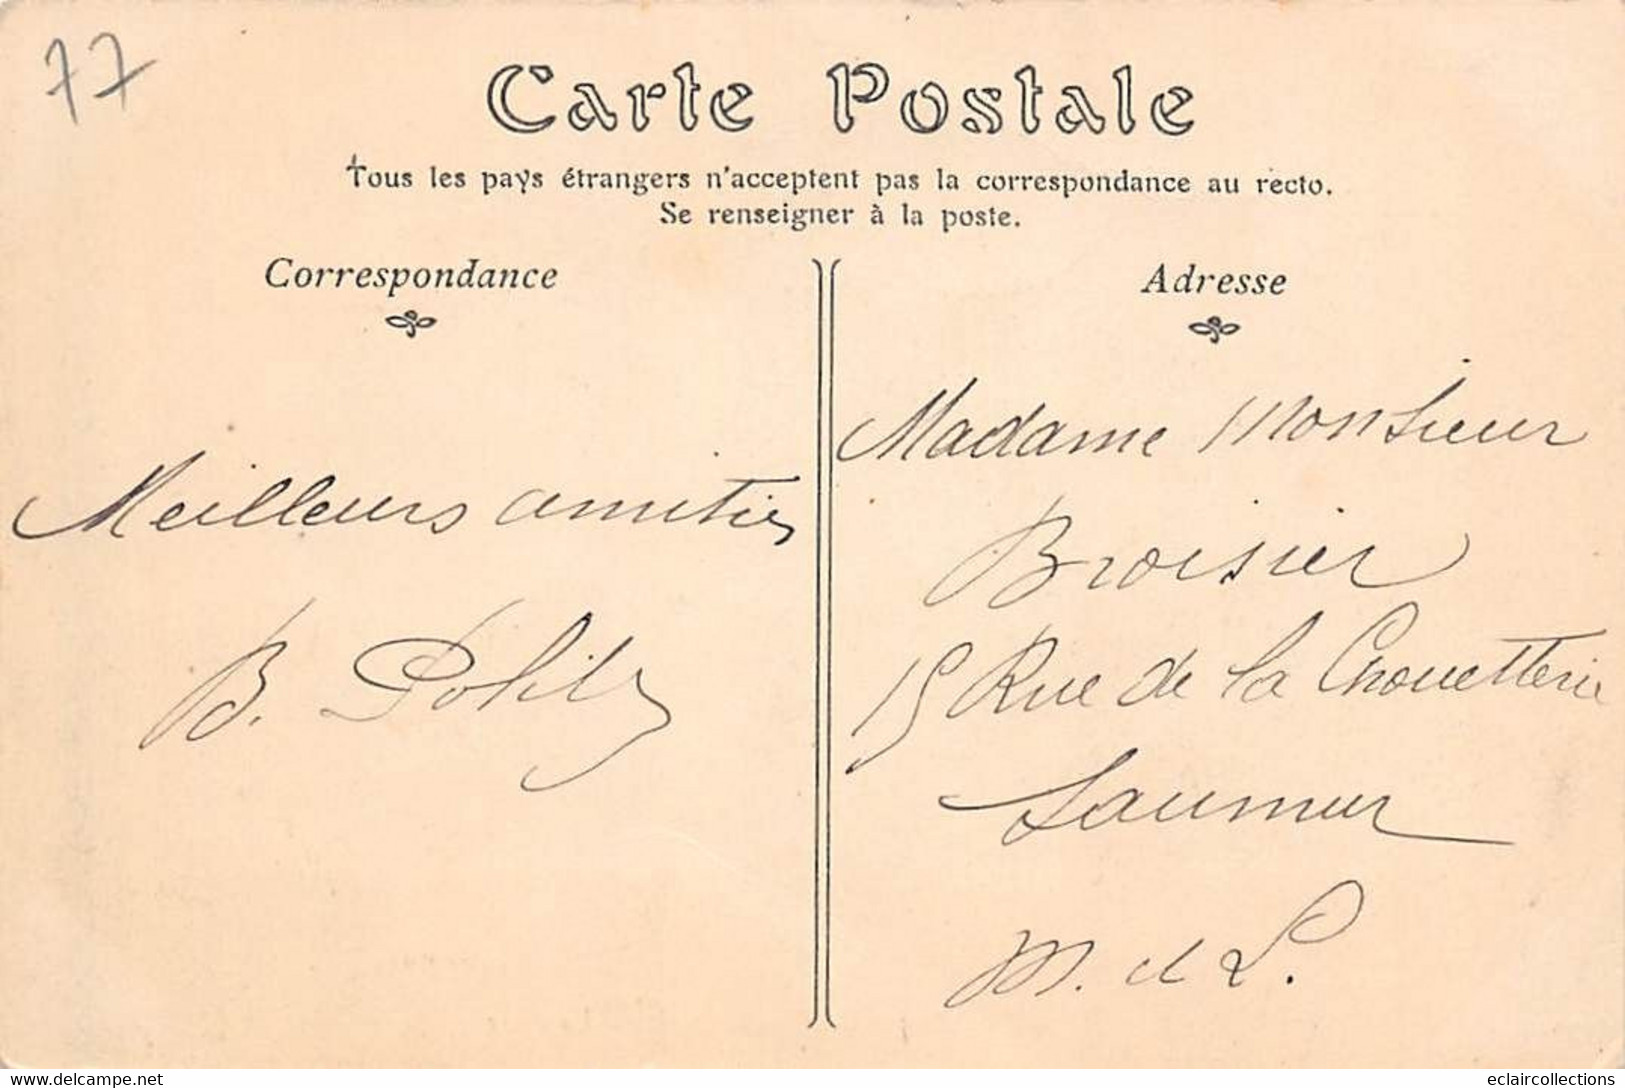 77
Carte Postale
Tous les pays étrangers n'acceptent pas la correspondance au recto.
Se renseigner à la poste.
Correspondance
Meilleurs amitiés
B.
Adresse
Madame Monsieur
Broisier
15 Rue de la Chouetterie
Saumur
M. et L.
www.delcampe.net
eclaircollections